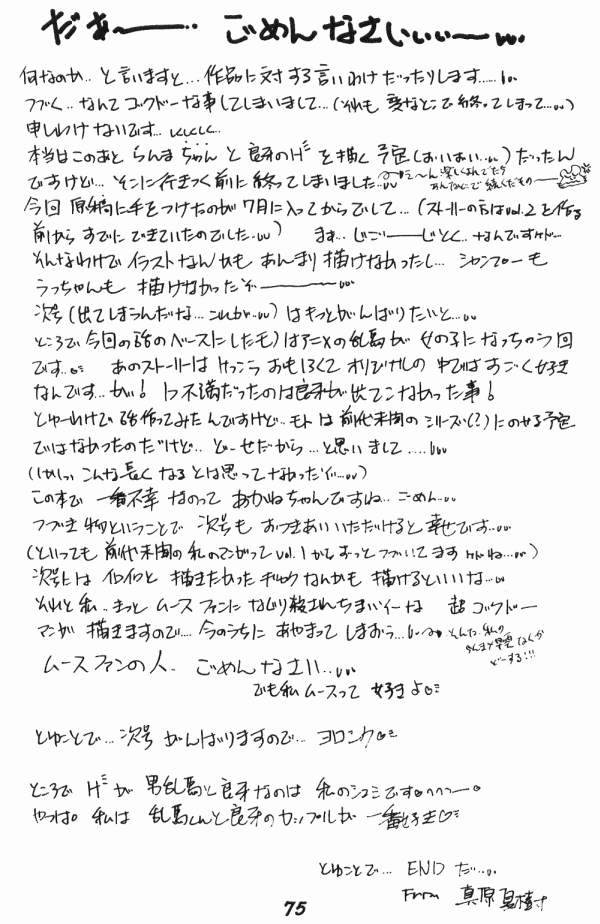 だぁ〜――‥ ごめんなさいぃぃぃ―
何なのか‥と言いますと…作品に対する言いわけだったりします……
つづく‥なんてゴクドーな事してしまいまして…(それも変なとこで終ってしまって…)
申しわけないです…しくしくしく…
本当はこのあと らんまちゃんと良牙のHを描く予定(おいおい…)だったん
ですけど…そこに行きつく前に終ってしまいました…
今回 原稿に手をつけたのが7月に入ってからでして…(ストーリーの方はvol.2を作る
前から すでにできていたのでした…) まぁ…じごー――じとく…なんですけど…
そんなわけでイラストなんかも あんまり描けなかったし… シャンプーも
うっちゃんも 描けなかったぞ―――
次号(出てしまうんだな…これが…)はもっとがんばりたいと…
ところで今回の話のベースにしたモノはアニメの乱馬が女の子になっちゃう回
です… あのストーリーは けっこうおもしろくてオリジナルの中ではすごく好き
なんです…が! 1つ不満だったのは良牙が出てこなかった事!
とゆーわけで話作ってみたんですけど‥モトは前代未聞のシリーズ(?)にのせる予定
ではなかったのだけど‥ど―せだから…と思いまして……
(しかしっこんな長くなるとは思ってなかったぞ…)
この本で 一番不幸なのって あかねちゃんですね…ごめん…
つづき物ということで 次号も おつきあいいただけると幸せです…
(といっても前代未聞の私のまんがってvol.1からずっとつづいてますけどね…)
次号には イロイロと 描きたかったギャグなんかも 描けるといいな…
それと私‥きっと ムースファンになぐり殺されちまいそーな 超ゴクドー
マンガ 描きますので…今のうちに あやまって しまおう…
そんな私の
どーする!!!
ムースファンの人‥ ごめんなさい…
でも私ムースって 好きよ♡
とゆことで…次号 がんばりますので…ヨロシク♡
ところで Hが 男乱馬と良牙なのは 私のシュミです―
やっぱ 私は 乱馬くんと良牙のカップルが 一番好き♡
とゆことで… END だ…
From 真原
75